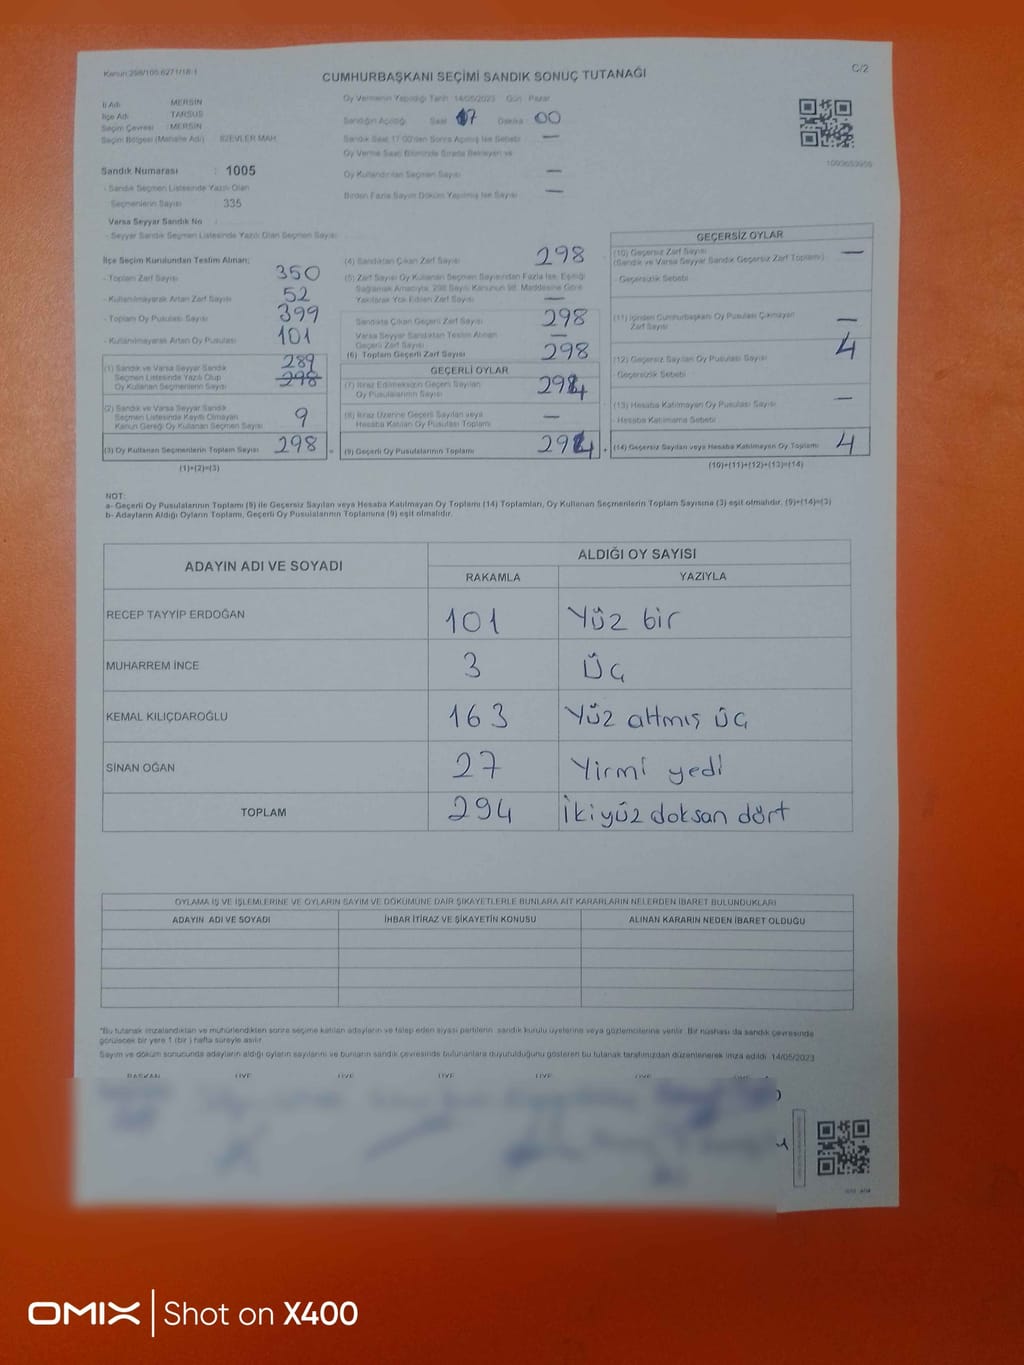 Kanun:298/105.6271/18-1
CUMHURBAŞKANI SEÇİMİ SANDIK SONUÇ TUTANAĞI
C/2
İl Adı MERSİN
İlçe Adı TARSUS
Seçim Çevresi : MERSİN
Seçim Bölgesi (Mahalle Adı) 82EVLER MAH.
Oy Vermenin Yapıldığı Tarih 14/05/2023 Gün : Pazar
Sandığın Açıldığı Saat 17 Dakika 00
Sandık Saat 17:00'den Sonra Açılmış İse Sebebi —
Oy Verme Saati Bitiminde Sırada Bekleyen ve
Oy Kullandırılan Seçmen Sayısı —
Birden Fazla Sayım Döküm Yapılmış İse Sayısı —
Sandık Numarası : 1005
- Sandık Seçmen Listesinde Yazılı Olan
Seçmenlerin Sayısı 335
Varsa Seyyar Sandık No :
- Seyyar Sandık Seçmen Listesinde Yazılı Olan Seçmen Sayısı:
İlçe Seçim Kurulundan Teslim Alınan;
- Toplam Zarf Sayısı 350
- Kullanılmayarak Artan Zarf Sayısı 52
- Toplam Oy Pusulası Sayısı 399
- Kullanılmayarak Artan Oy Pusulası 101
(1) Sandık ve Varsa Seyyar Sandık 289
Seçmen Listesinde Yazılı Olup 298
Oy Kullanan Seçmenlerin Sayısı
(2) Sandık ve Varsa Seyyar Sandık
Seçmen Listesinde Kayıtlı Olmayan 9
Kanun Gereği Oy Kullanan Seçmen Sayısı
(3) Oy Kullanan Seçmenlerin Toplam Sayısı 298
(1)+(2)=(3)
(4) Sandıktan Çıkan Zarf Sayısı 298
(5) Zarf Sayısı Oy Kullanan Seçmen Sayısından Fazla İse, Eşitliği
Sağlamak Amacıyla, 298 Sayılı Kanunun 98. Maddesine Göre
Yakılarak Yok Edilen Zarf Sayısı —
Sandıkta Çıkan Geçerli Zarf Sayısı 298
Varsa Seyyar Sandıktan Teslim Alınan
Geçerli Zarf Sayısı —
(6) Toplam Geçerli Zarf Sayısı 298
GEÇERLİ OYLAR
(7) İtiraz Edilmeksizin Geçerli Sayılan
Oy Pusulalarının Sayısı 294
(8) İtiraz Üzerine Geçerli Sayılan veya
Hesaba Katılan Oy Pusulası Toplamı —
(9) Geçerli Oy Pusulalarının Toplamı 294
GEÇERSİZ OYLAR
(10) Geçersiz Zarf Sayısı —
(Sandık ve Varsa Seyyar Sandık Geçersiz Zarf Toplamı)
- Geçersizlik Sebebi
(11) İçinden Cumhurbaşkanı Oy Pusulası Çıkmayan
Zarf Sayısı —
(12) Geçersiz Sayılan Oy Pusulası Sayısı 4
- Geçersizlik Sebebi
(13) Hesaba Katılmayan Oy Pusulası Sayısı —
- Hesaba Katılmama Sebebi
(14) Geçersiz Sayılan veya Hesaba Katılmayan Oy Toplamı 4
(10)+(11)+(12)+(13)=(14)
NOT:
a- Geçerli Oy Pusulalarının Toplamı (9) ile Geçersiz Sayılan veya Hesaba Katılmayan Oy Toplamı (14) Toplamları, Oy Kullanan Seçmenlerin Toplam Sayısına (3) eşit olmalıdır. (9)+(14)=(3)
b- Adayların Aldığı Oyların Toplamı, Geçerli Oy Pusulalarının Toplamına (9) eşit olmalıdır.
ADAYIN ADI VE SOYADI
ALDIĞI OY SAYISI
RAKAMLA YAZIYLA
RECEP TAYYİP ERDOĞAN 101 Yüz bir
MUHARREM İNCE 3 Üç
KEMAL KILIÇDAROĞLU 163 Yüz altmış üç
SİNAN OĞAN 27 Yirmi yedi
TOPLAM 294 İkiyüz doksan dört
OYLAMA İŞ VE İŞLEMLERİNE VE OYLARIN SAYIM VE DÖKÜMÜNE DAİR ŞİKAYETLERLE BUNLARA AİT KARARLARIN NELERDEN İBARET BULUNDUKLARI
ADAYIN ADI VE SOYADI İHBAR İTİRAZ VE ŞİKAYETİN KONUSU ALINAN KARARIN NEDEN İBARET OLDUĞU
*Bu tutanak imzalandıktan ve mühürlendikten sonra seçime katılan adayların ve talep eden siyasi partilerin sandık kurulu üyelerine veya gözlemcilerine verilir. Bir nüshası da sandık çevresinde
görülecek bir yere 1 (bir) hafta süreyle asılır.
Sayım ve döküm sonucunda adayların aldığı oyların sayılarını ve bunların sandık çevresinde bulunanlara duyurulduğunu gösteren bu tutanak tarafımızdan düzenlenerek imza edildi. 14/05/2023
BAŞKAN ÜYE ÜYE ÜYE ÜYE ÜYE ÜYE
OMIX Shot on X400